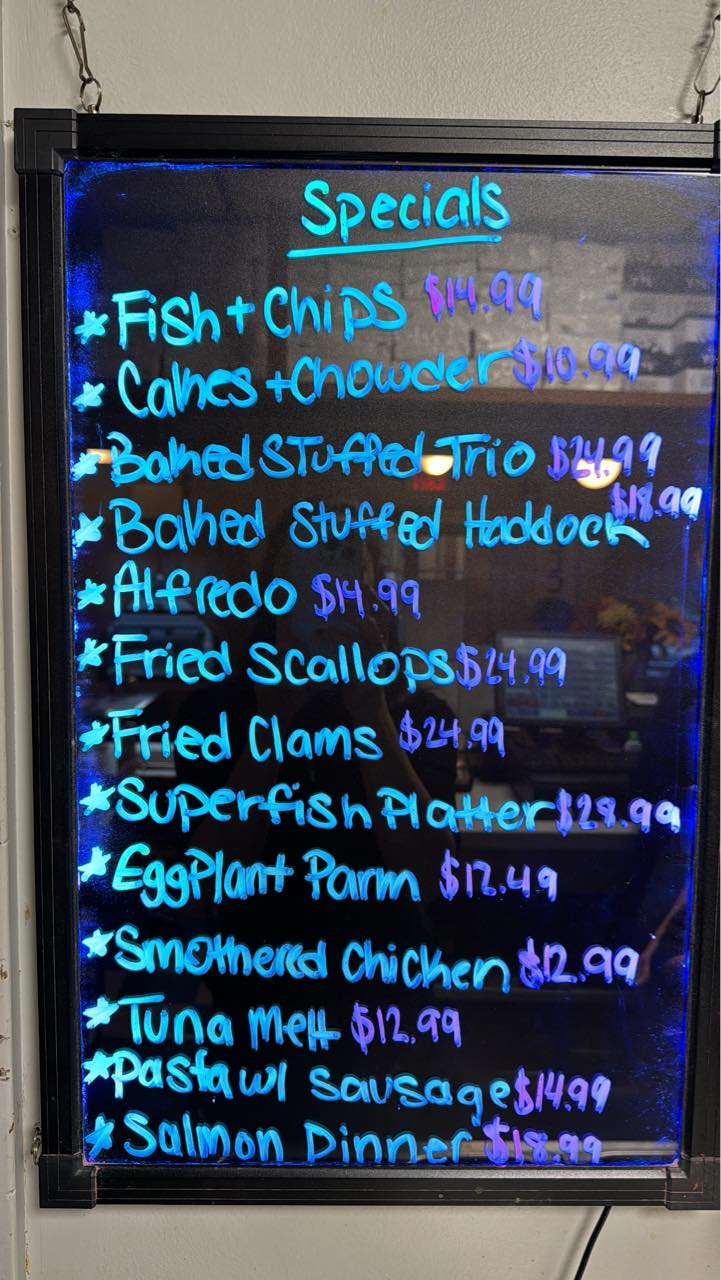 Specials
*Fish + Chips $14.99
*Cakes + Chowder $10.99
*Baked Stuffed Trio $24.99
*Baked Stuffed Haddock $18.99
*Alfredo $14.99
*Fried Scallops $24.99
*Fried Clams $24.99
*Superfish Platter $28.99
*EggPlant Parm $12.49
*Smothered Chicken $12.99
*Tuna Melt $12.99
*Pasta w/ Sausage $14.99
*Salmon Dinner $18.99